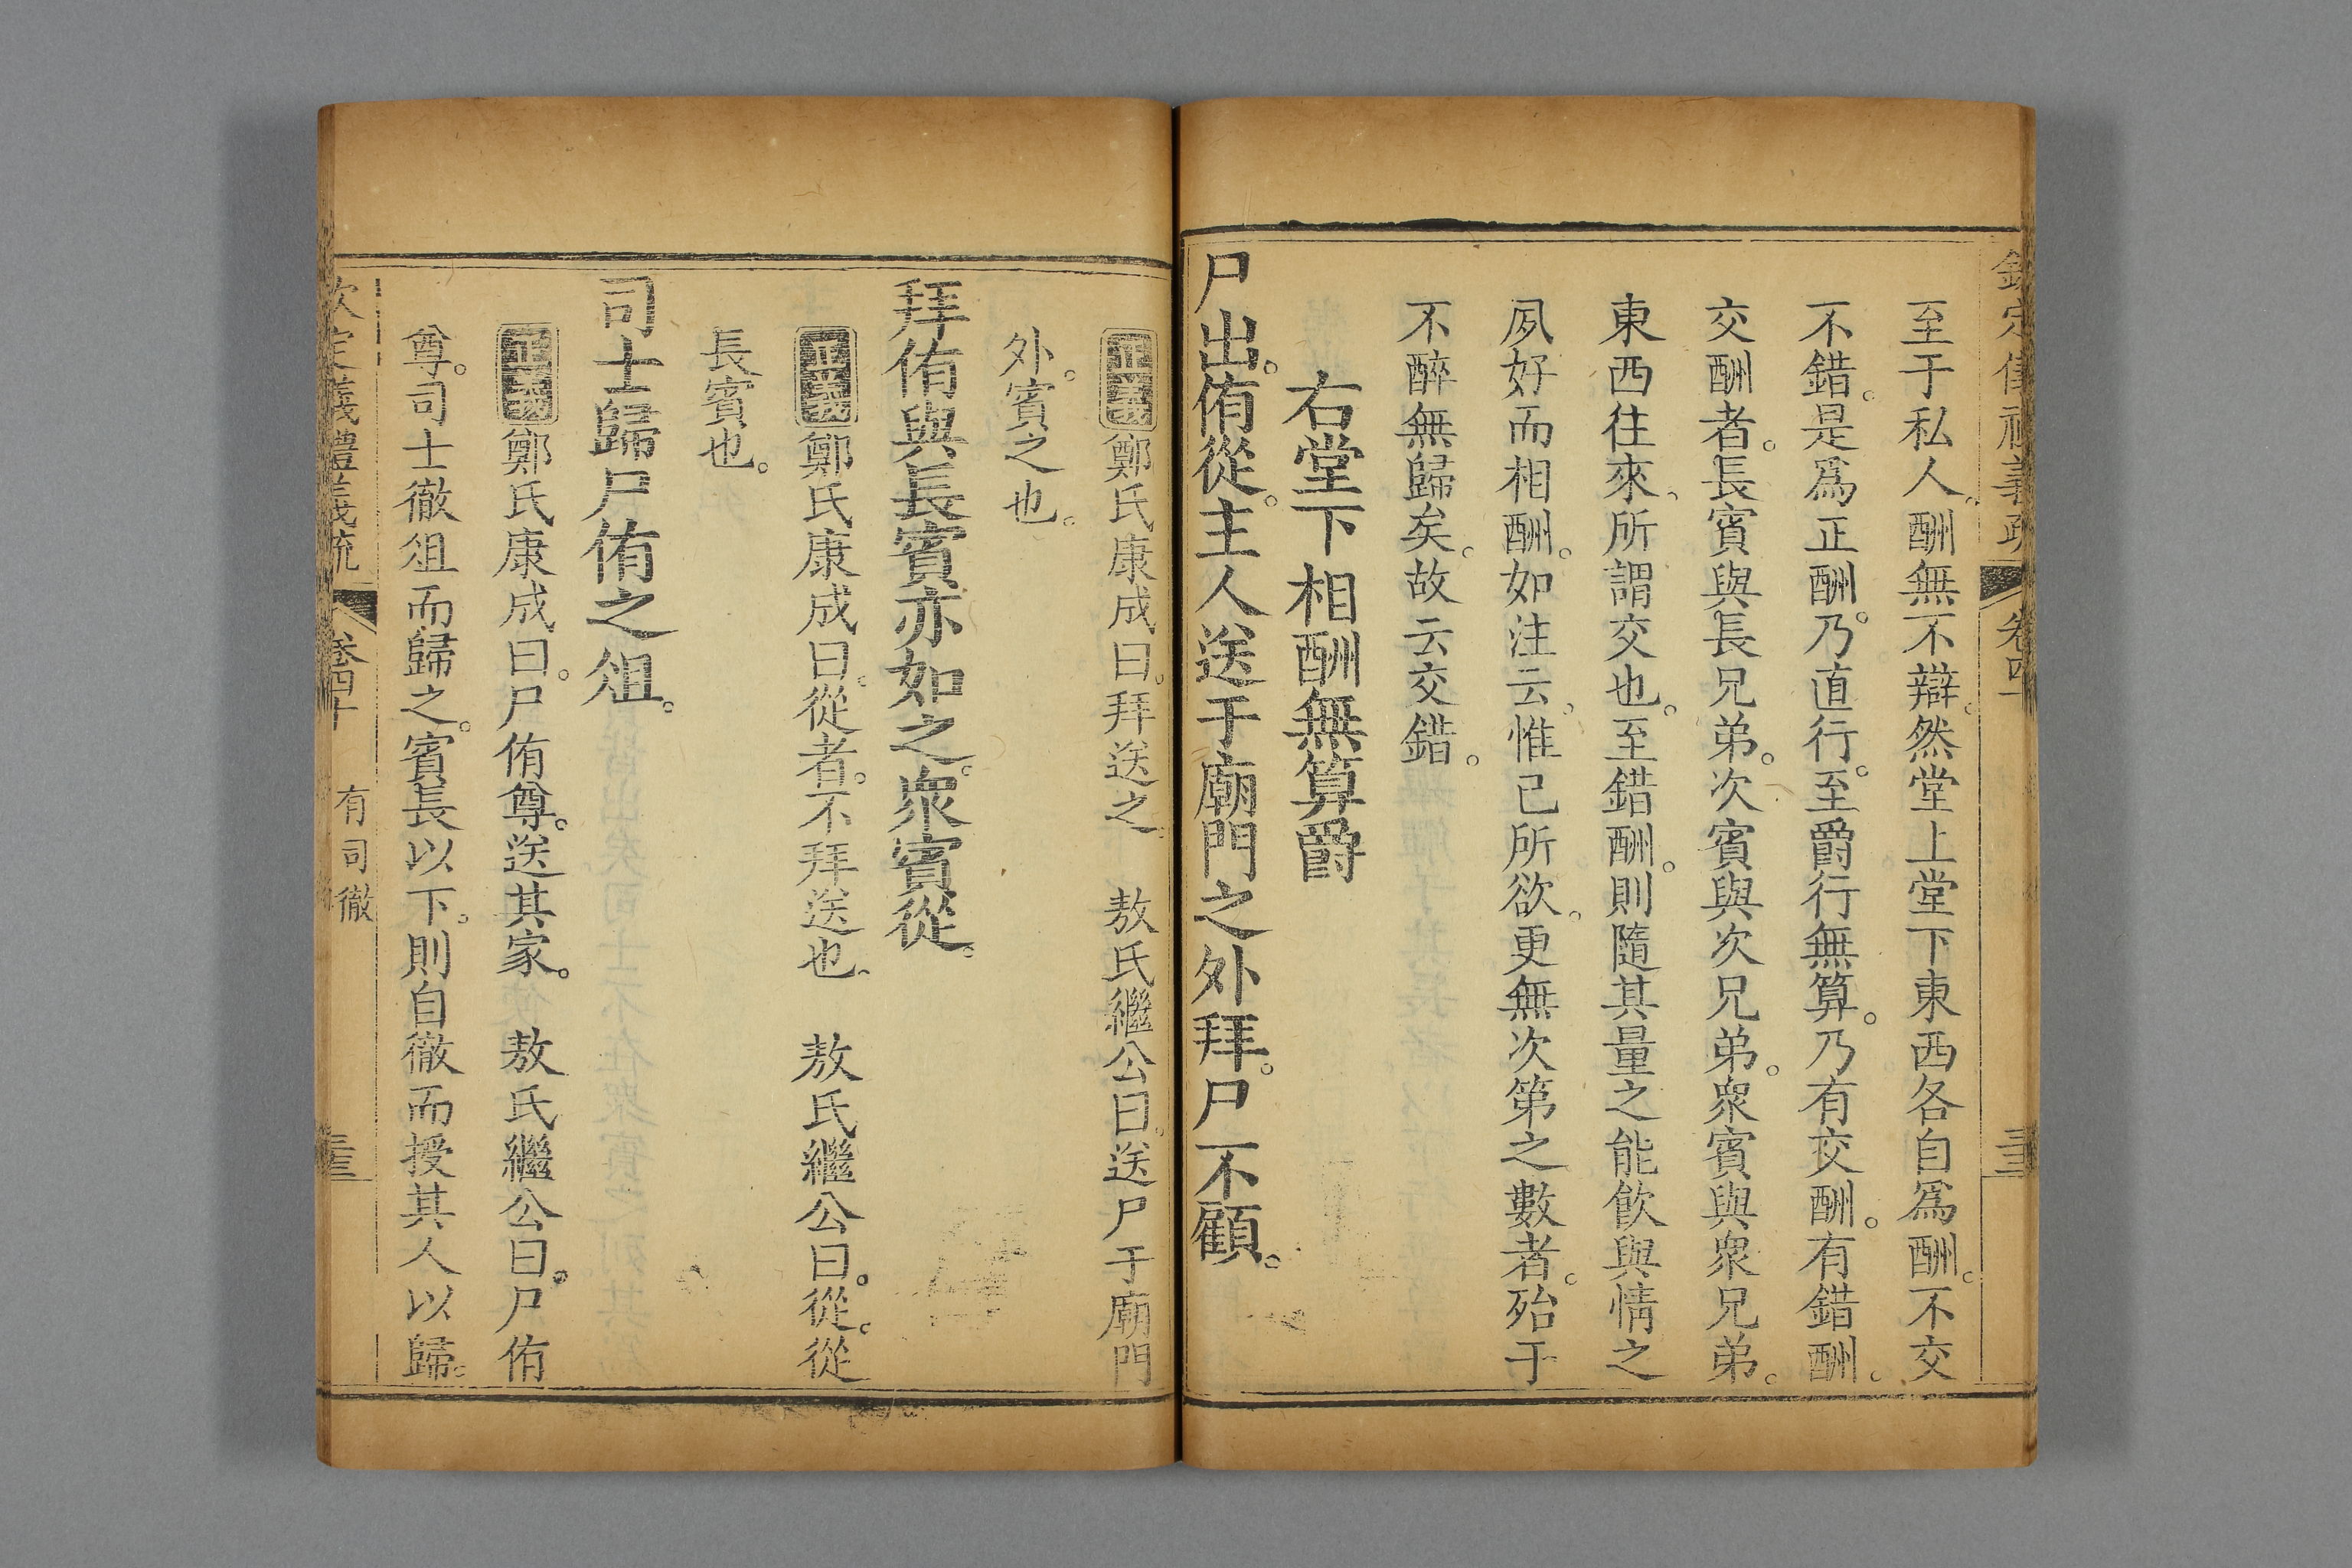 至于私人。酬無不辯。然堂上堂下東西各自爲酬。不交
不錯。是爲正酬。乃直行。至爵行無算。乃有交酬。有錯酬。
交酬者。長賓與長兄弟。次賓與次兄弟。衆賓與衆兄弟。
東西往來。所謂交也。至錯酬。則隨其量之能飮與情之
夙好而相酬。如注云。惟己所欲。更無次第之數者。殆于
不醉無歸矣。故云交錯。
右堂下相酬無算爵
尸出。侑從。主人送于廟門之外拜。尸不顧。
正義鄭氏康成曰。拜送之。 敖氏繼公曰。送尸于廟門
外。賓之也。
拜侑與長賓亦如之。衆賓從。
正義鄭氏康成曰。從者。不拜送也。 敖氏繼公曰。從。從
長賓也。
司士歸尸侑之俎。
正義鄭氏康成曰。尸侑尊。送其家。 敖氏繼公曰。尸侑
尊。司士徹俎而歸之。賓長以下。則自徹而授其人以歸。
卷四十 有司徹